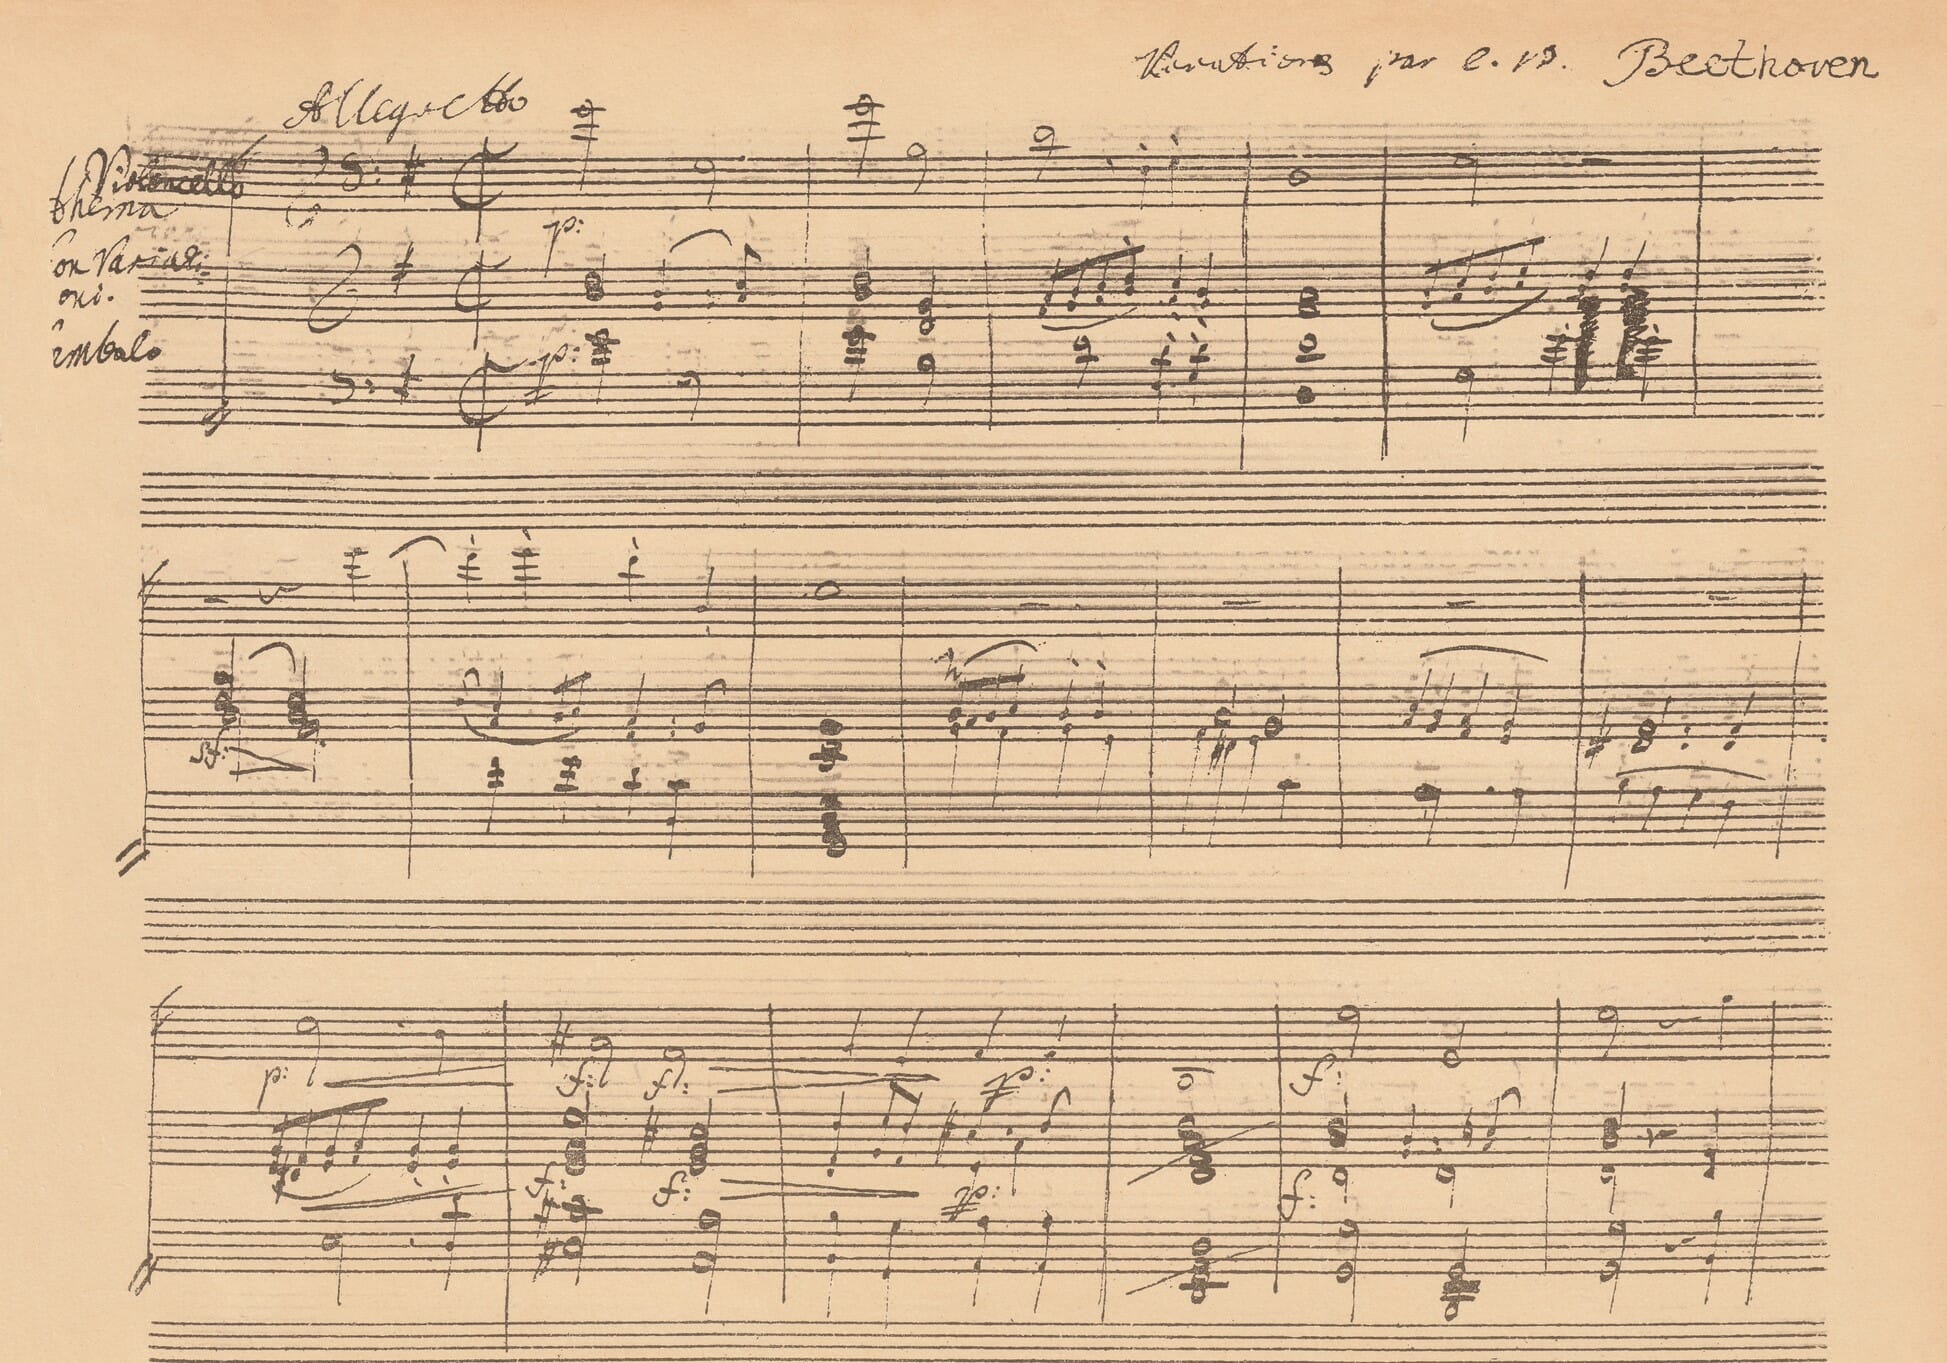 Variations par L. v. Beethoven
Allegretto
Violoncello
thema
on Variati
oni.
imbalo
p:
p:
sf:
p:
f: f: p:
f:
f: f: p:
f: